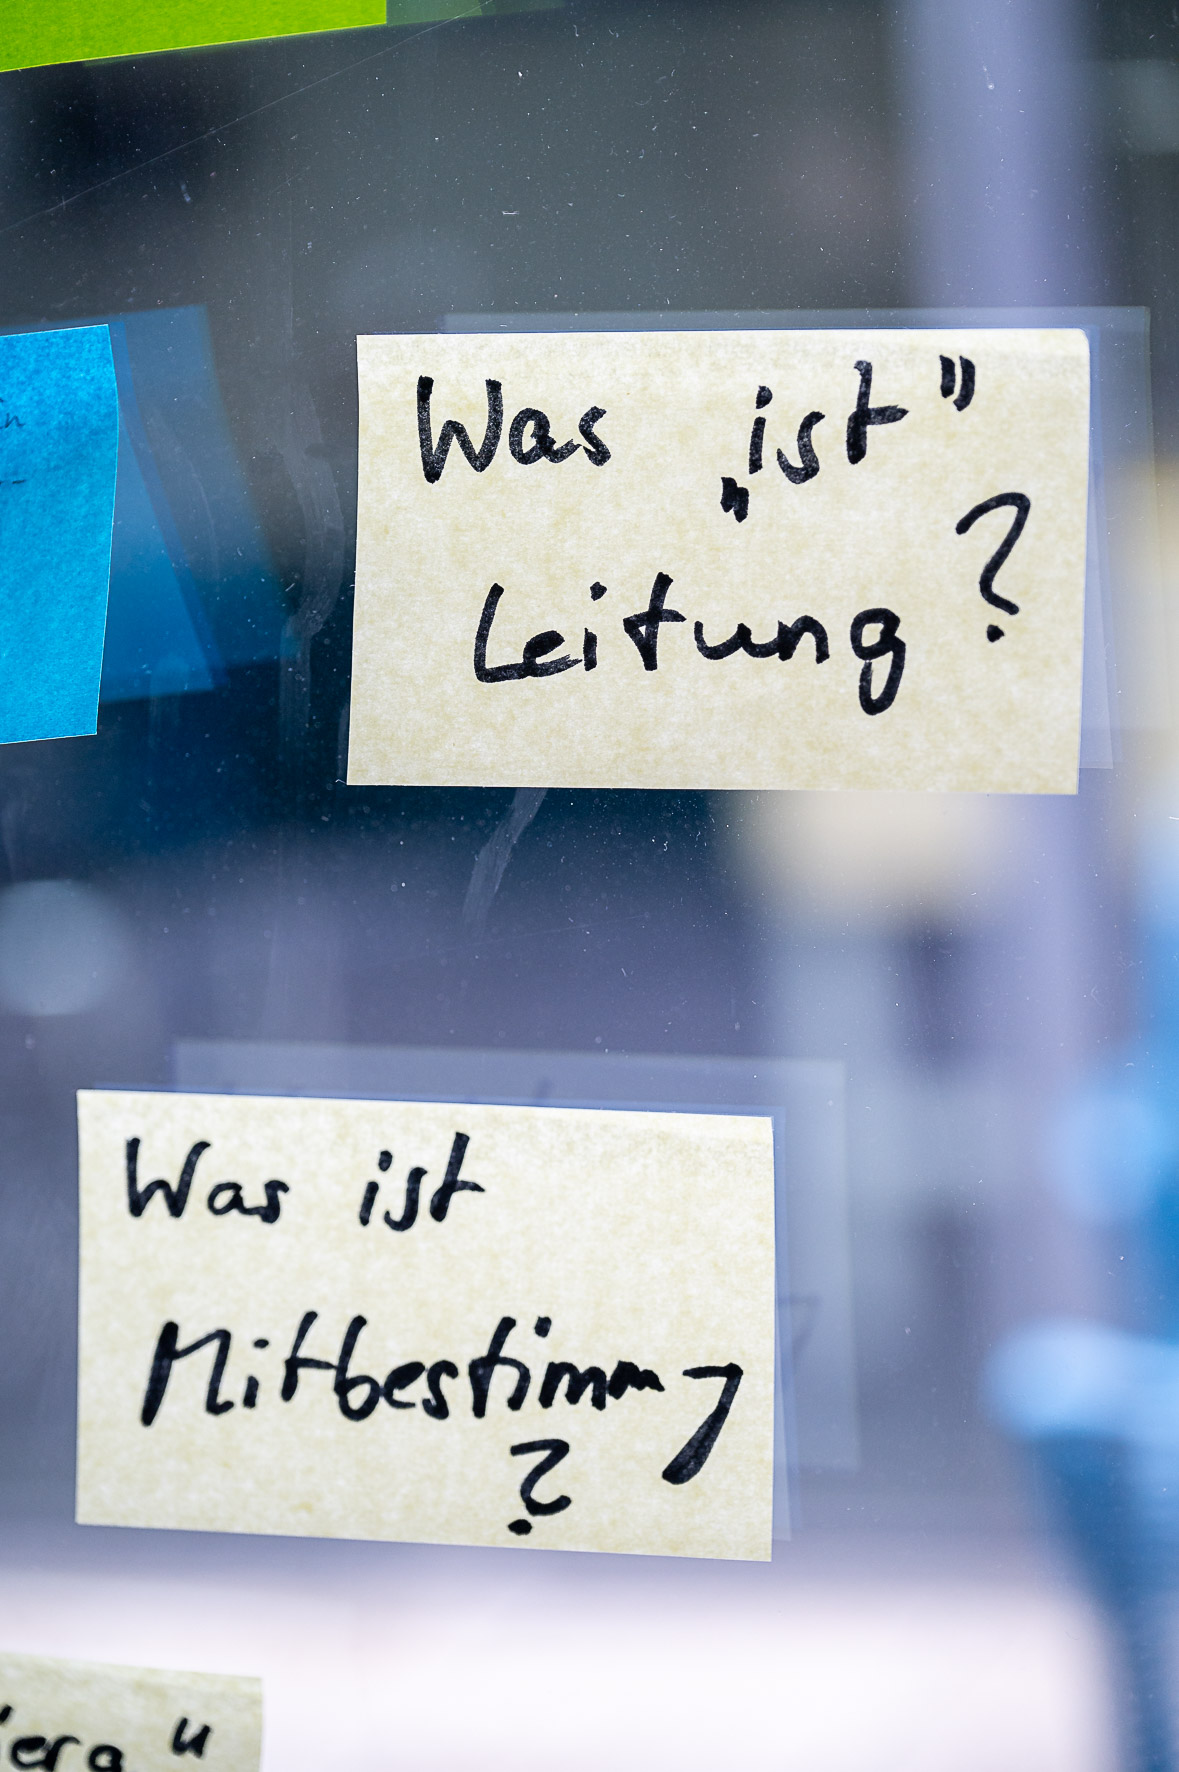 Was „ist"
Leitung ?
Was ist
Mitbestimmung
?